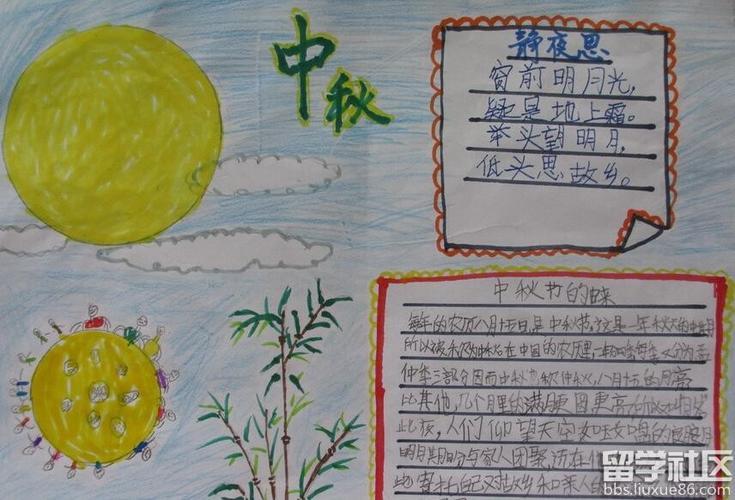 中秋
静夜思
窗前明月光,
疑是地上霜。
举头望明月,
低头思故乡。
中秋节的由来
每年的农历八月十五日,是中秋节,这是一年秋天的中期
所以被称为中秋。在中国的农历里,一年 每季又分为孟
仲季三部分因而中秋也称仲秋,八月十五的月亮
比其他,几个月里的满月更圆更亮所以又
此夜,人们仰望天空如玉如盘的
明月期盼与家人团聚,远在他
寄托自己对故乡和亲人的
留学社区
bbs.liuxue86.com